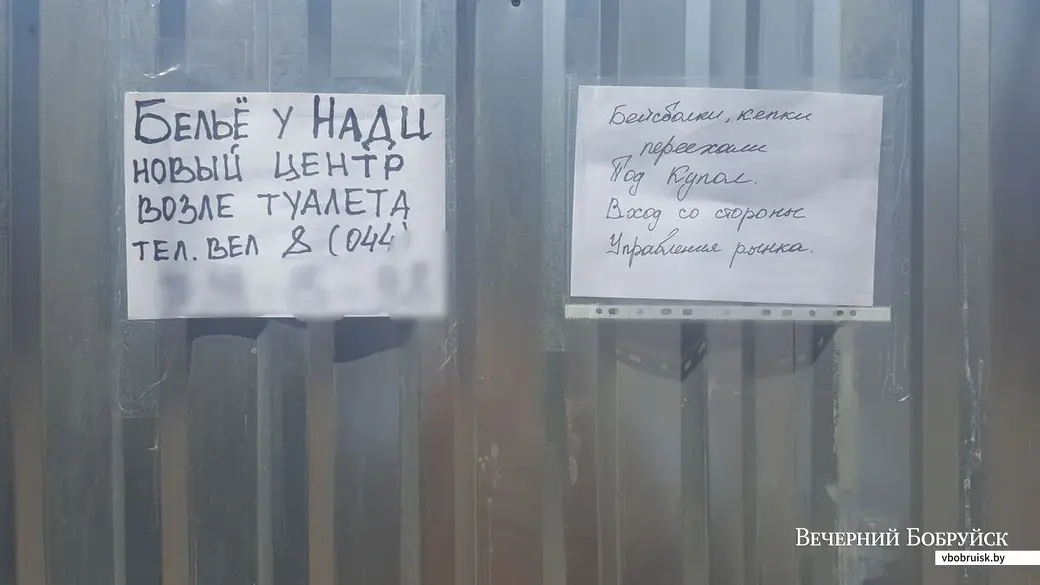 БЕЛЬЁ У НАДИ
НОВЫЙ ЦЕНТР
ВОЗЛЕ ТУАЛЕТА
ТЕЛ. ВЕЛ 8 (044)
Бейсболки, кепки
переехали
Под Купол.
Вход со стороны
Управления рынка.
ВЕЧЕРНИЙ БОБРУЙСК
vbobruisk.by